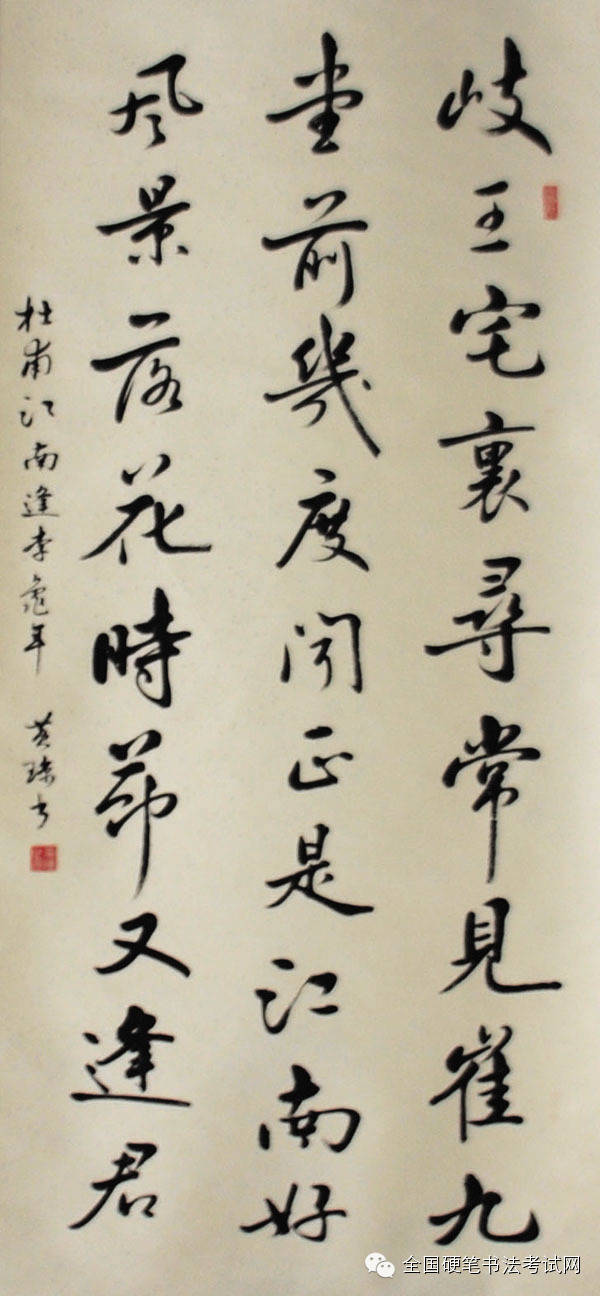 岐王宅裏尋常見崔九
堂前幾度聞正是江南好
風景落花時節又逢君
杜甫江南逢李龜年
书
全国硬笔书法考试网